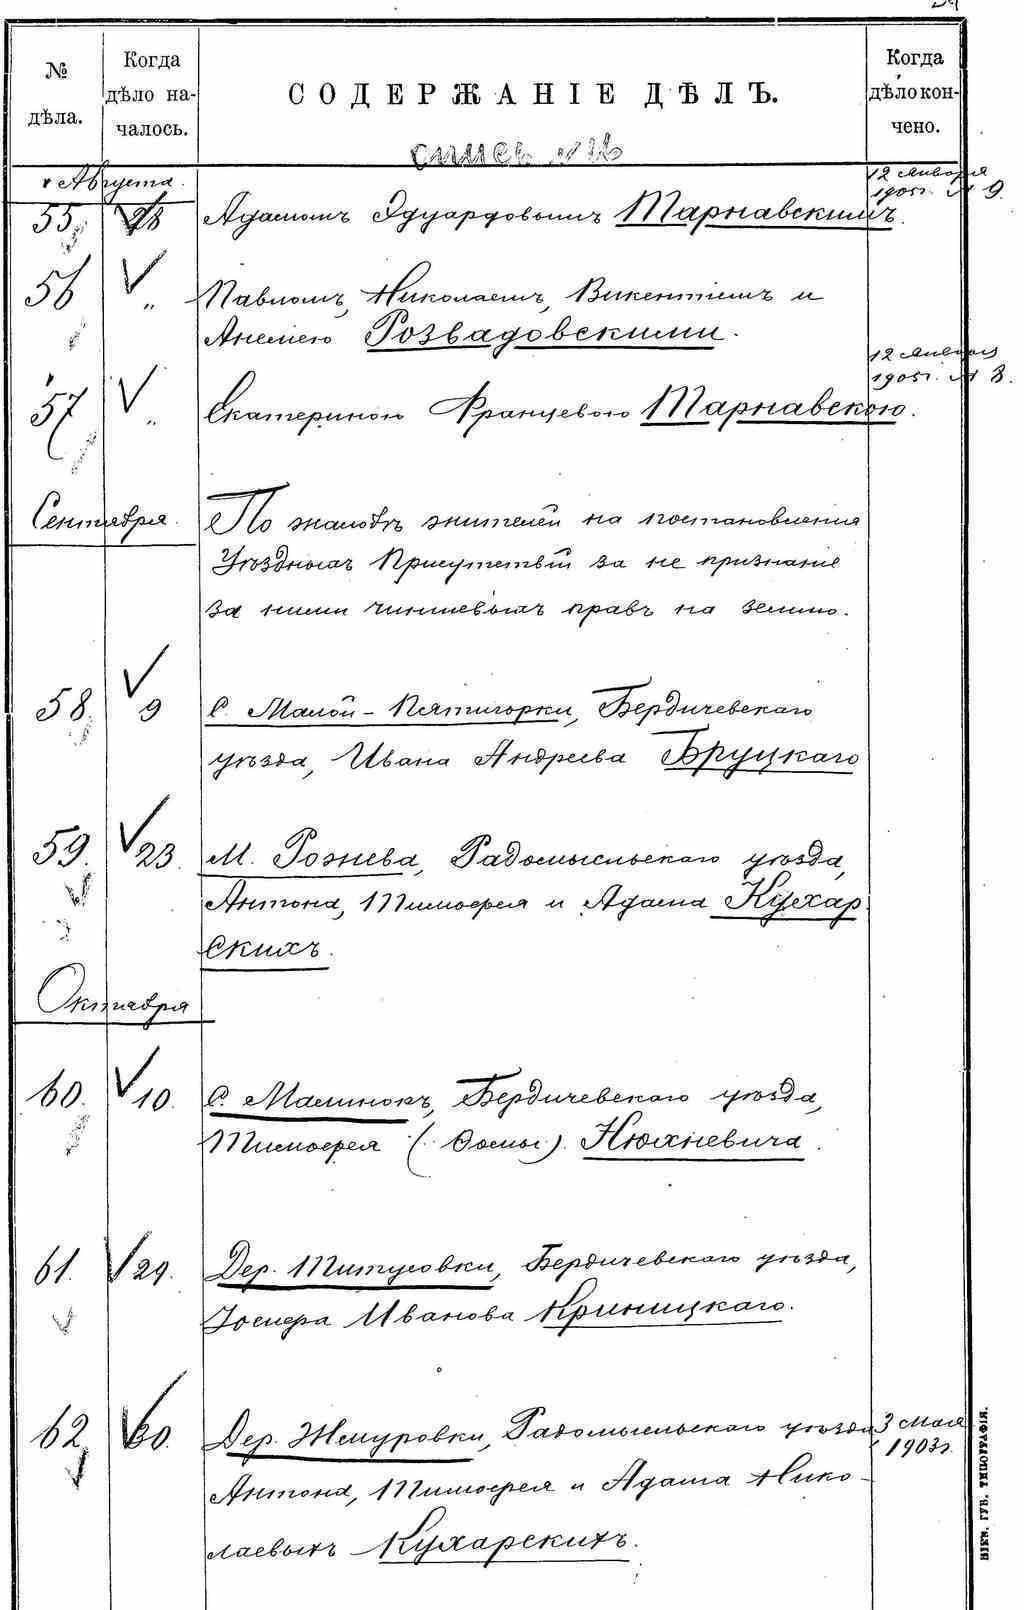 № дѣла.
Когда дѣло на-
чалось.
СОДЕРЖАНІЕ ДѢЛЪ.
Когда дѣло кон-
чено.
Августа.
12 Января
1905 г. № 9.
55. 28 Адамомъ Эдуардовымъ Тарнавскимъ.
56 " Павломъ, Николаемъ, Викентіемъ и
Анелею Розвадовскими.
12 Января
1905 г. № 8.
57 " Екатериною Францевою Тарнавскою.
Сентября. По жалобѣ жителей на постановленія
Уѣздныхъ Присутствій за не признаніе
за ними чиншевыхъ правъ на землю.
58. 9 С. Малой-Пятигорки, Бердичевскаго
уѣзда, Ивана Андреева Бруцкаго
59. 23. М. Рожева, Радомысльскаго уѣзда,
Антона, Тимофея и Адама Кухар
скихъ.
Октября
60. 10. С. Малинокъ, Бердичевскаго уѣзда,
Тимофея (Фомы) Нюхневича.
61. 29. Дер. Титусовки, Бердичевскаго уѣзда,
Іосифа Иванова Криницкаго.
62. 30. Дер. Жмуровки, Радомысльскаго уѣзда 3 Мая
1903 г.
Антона, Тимофея и Адама Нико-
лаевыхъ Кухарскихъ.
КІЕВ. ГУБ. ТИПОГРАФІЯ.